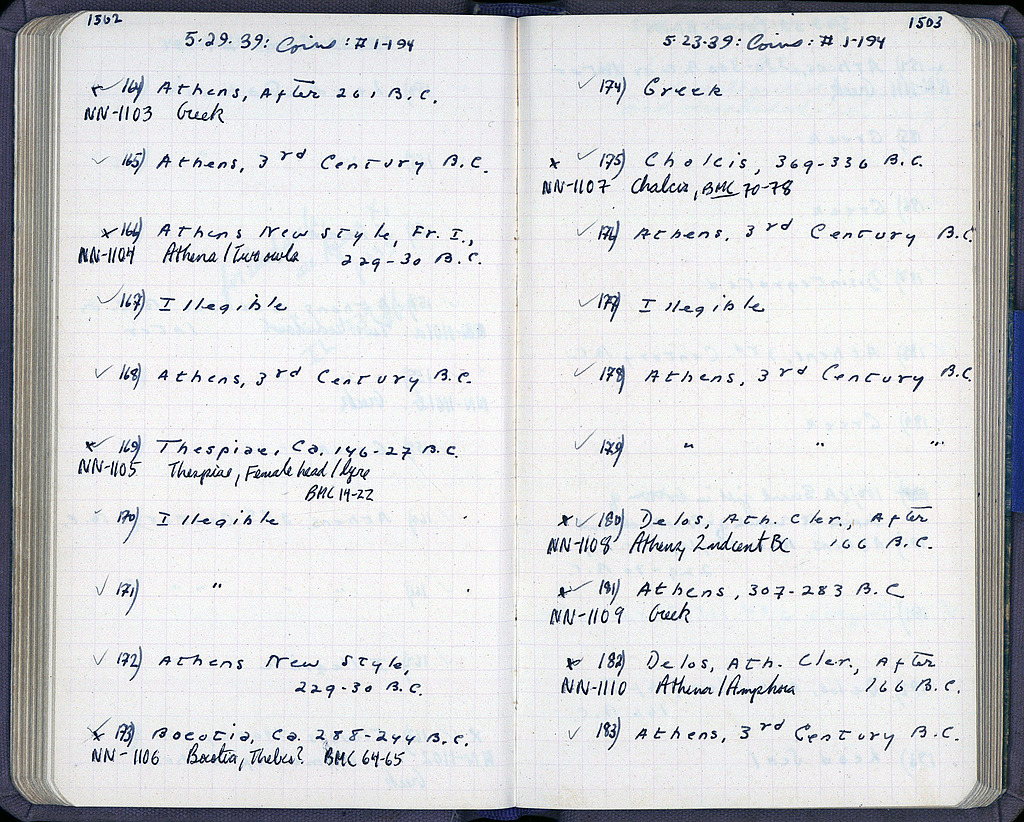 1502
5.29.39: Coins: # 1-194
x ✓ 164) Athens, After 261 B.C.
NN-1103 Greek
✓ 165) Athens, 3rd Century B.C.
x ✓ 166) Athens New Style, Fr. I.,
NN-1104 Athena/Two owls 229-30 B.C.
✓ 167) Illegible
✓ 168) Athens, 3rd Century B.C.
x ✓ 169) Thespiae, Ca. 146-27 B.C.
NN-1105 Thespiae, Female head/lyre
BMC 14-22
✓ 170) Illegible
✓ 171) "
✓ 172) Athens New Style,
229-30 B.C.
x ✓ 173) Boeotia, Ca. 288-244 B.C.
NN-1106 Boeotia, Thebes? BMC 64-65
1503
5.23.39: Coins: # 1-194
✓ 174) Greek
x ✓ 175) Chalcis, 369-336 B.C.
NN-1107 Chalcis, BMC 70-78
✓ 176) Athens, 3rd Century B.C.
✓ 177) Illegible
✓ 178) Athens, 3rd Century B.C.
✓ 179) " " "
x ✓ 180) Delos, Ath. Cler., After
NN-1108 Athens, 2nd cent BC 166 B.C.
x ✓ 181) Athens, 307-283 B.C
NN-1109 Greek
x ✓ 182) Delos, Ath. Cler., After
NN-1110 Athena/Amphora 166 B.C.
✓ 183) Athens, 3rd Century B.C.